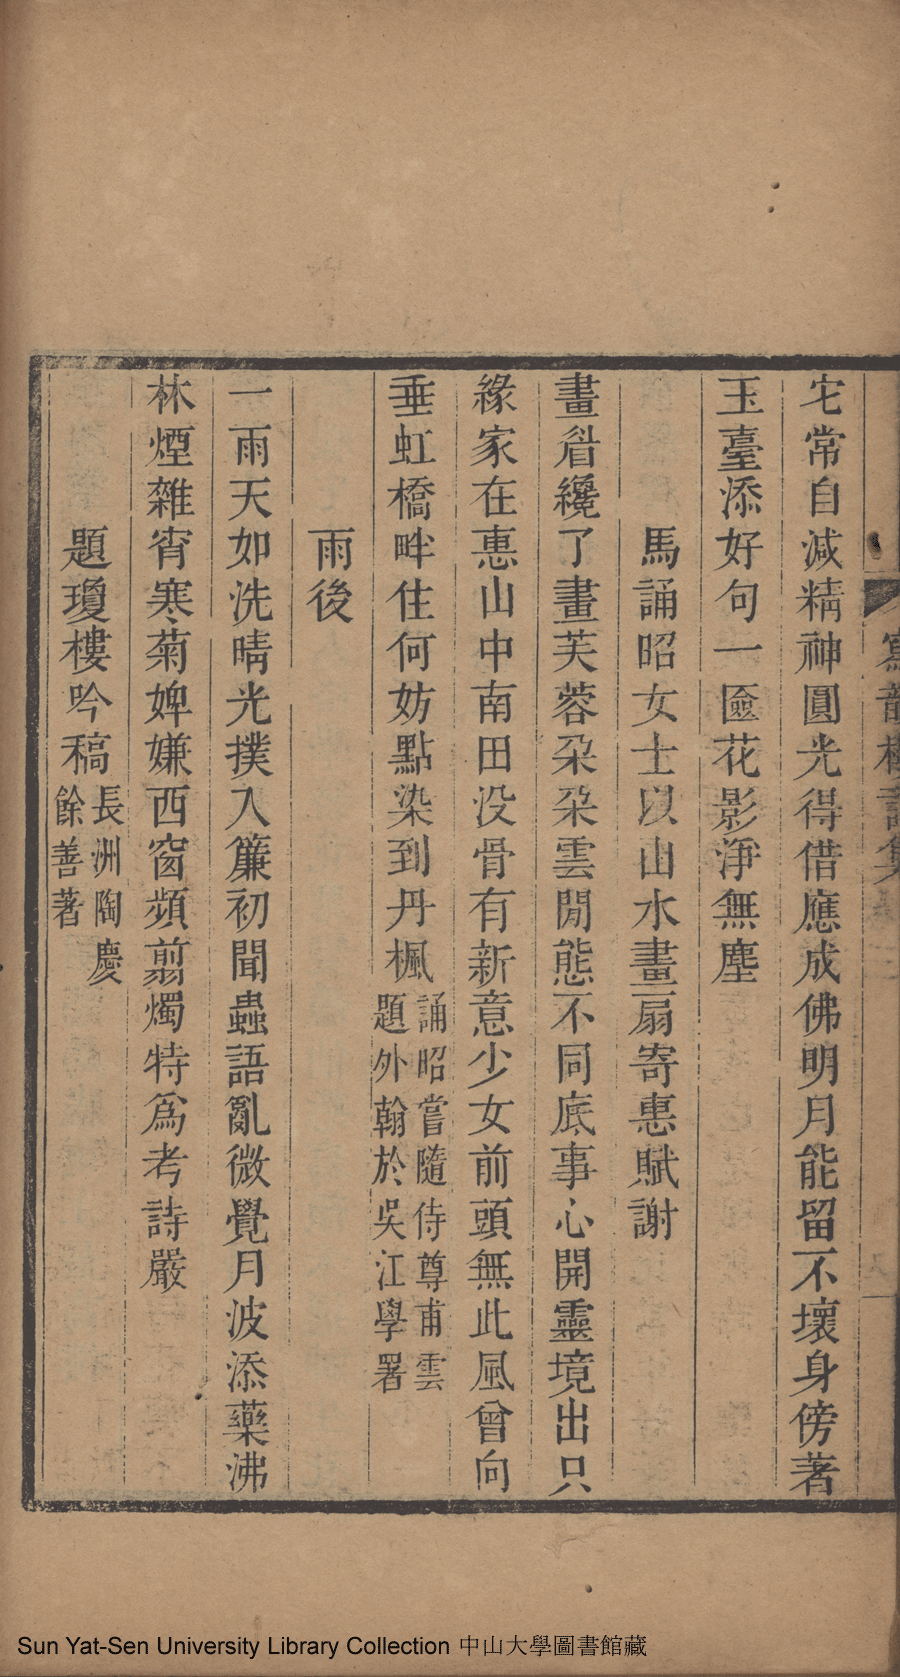 宅常自減精神圓光得借應成佛明月能留不壞身傍著
玉臺添好句一匳花影淨無塵
馬誦昭女士以山水畫扇寄惠賦謝
畫眉纔了畫芙蓉朶朶雲閒態不同底事心開靈境出只
緣家在惠山中南田没骨有新意少女前頭無此風曾向
垂虹橋畔住何妨點染到丹楓誦昭嘗隨侍尊甫雲
題外翰於吳江學署
雨後
一雨天如洗晴光撲入簾初聞蟲語亂微覺月波添藥沸
林煙雜宵寒菊婢嫌西窗頻翦燭特爲考詩嚴
題瓊樓吟稿長洲陶慶
餘善著
Sun Yat-Sen University Library Collection 中山大學圖書館藏